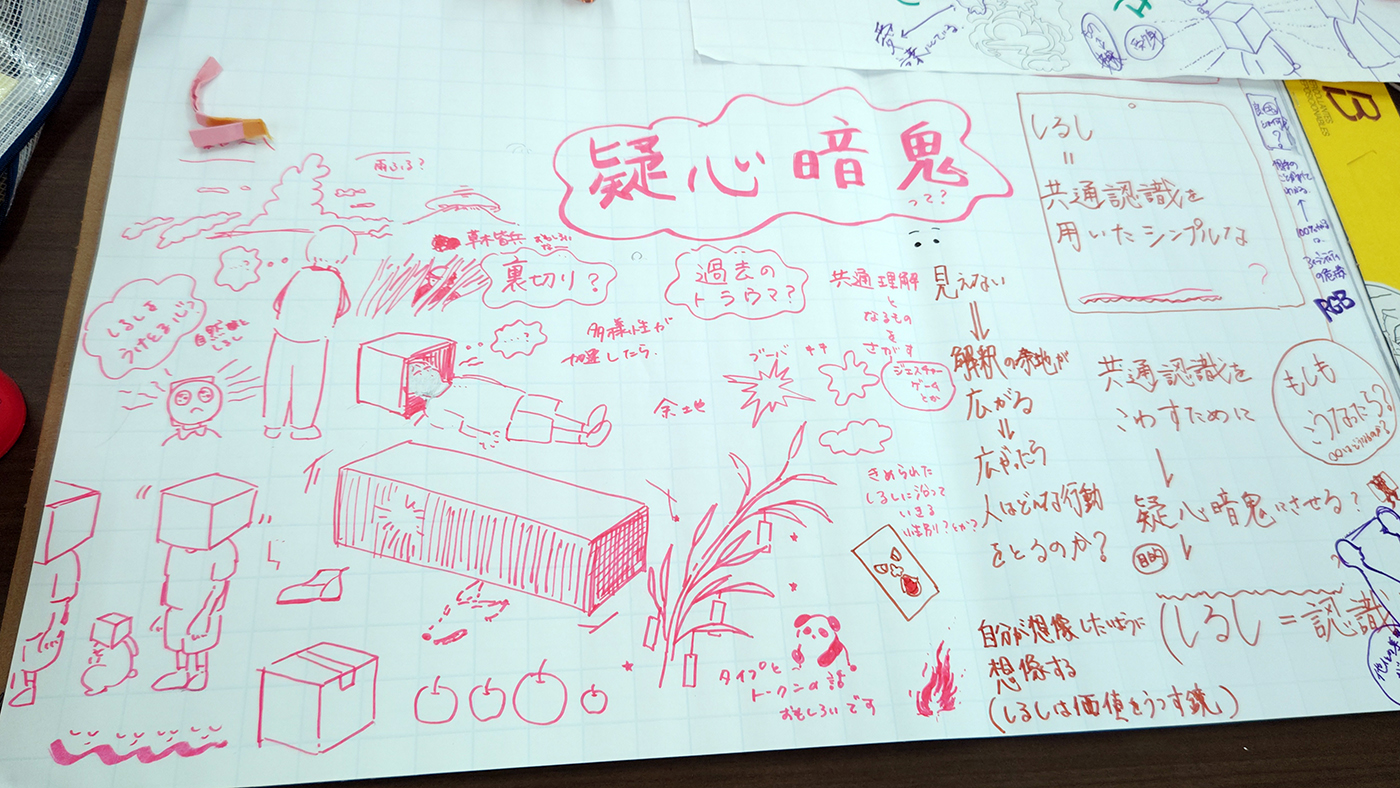 疑心暗鬼
って?
雨ふる?
草木皆兵
おもしろい
な
裏切り?
過去の
トラウマ?
しるしを
うけとる心?
自然 しるし
多様性が
加速したら
余地
ブーバ
キキ
共通理解
と
なるもの
を
さがす
ジェスチャー
ゲーム
とか
見えない
⇓
解釈の余地が
広がる
⇓
広がったら
人はどんな行動
をとるのか?
きめられた
しるしに沿って
いきる
性別?とか?
タイプと
トークンの話
おもしろいです
自分が想像したいように
想像する
(しるしは価値をうつす鏡)
しるし
=
共通認識を
用いたシンプルな
?
共通認識を
こわすために
↓
疑心暗鬼にさせる?
目的
↓
(しるし=認識
もしも
こうなったら?
RGB
B